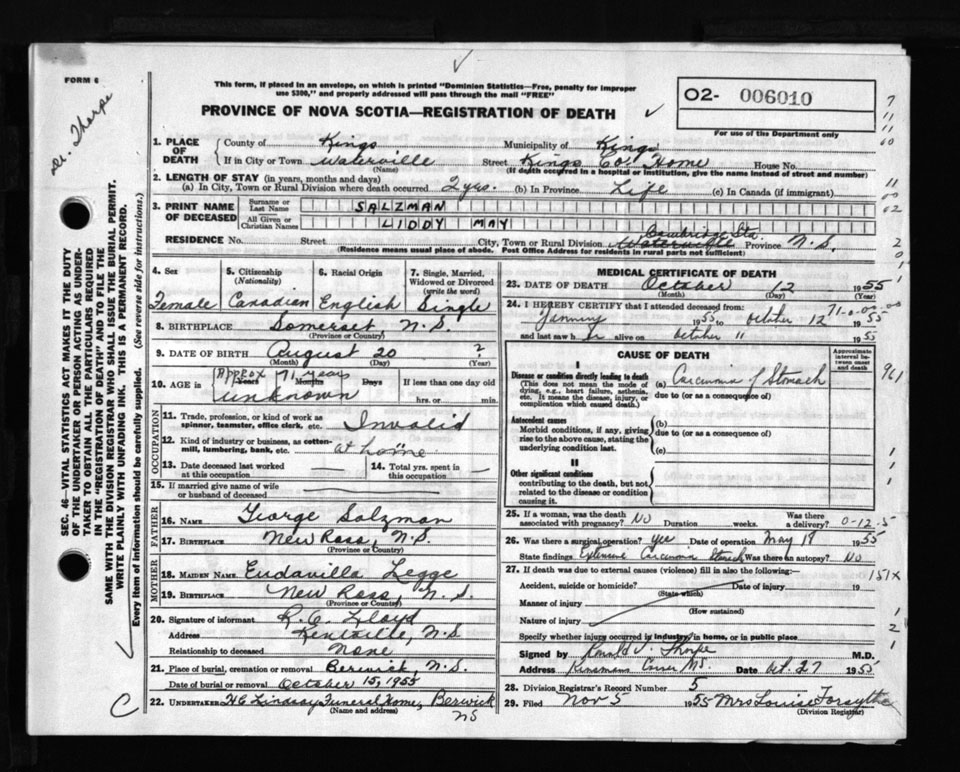 FORM 6
This form, if placed in an envelope, on which is printed "Dominion Statistics—Free, penalty for improper
use $300," and properly addressed will pass through the mail "FREE"
PROVINCE OF NOVA SCOTIA—REGISTRATION OF DEATH
O2- 006010
For use of the Department only
Dr. Thorpe
1. PLACE OF DEATH County of Kings Municipality of Kings
If in City or Town Waterville Street Kings Co. Home House No.
(Name) (If death occurred in a hospital or institution, give the name instead of street and number)
2. LENGTH OF STAY (in years, months and days)
(a) In City, Town or Rural Division where death occurred 2 yrs. (b) In Province Life (c) In Canada (if immigrant)
3. PRINT NAME OF DECEASED Surname or Last Name SALZMAN
All Given or Christian Names LIDDY MAY
Cambridge Sta.
RESIDENCE No. Street City, Town or Rural Division Waterville Province N.S.
(Residence means usual place of abode. Post Office Address for residents in rural parts not sufficient)
4. Sex 5. Citizenship (Nationality) 6. Racial Origin 7. Single, Married, Widowed or Divorced (write the word)
Female Canadian English Single
8. BIRTHPLACE Somerset, N.S.
(Province or Country)
9. DATE OF BIRTH August 20 ?
(Month) (Day) (Year)
10. AGE in Approx 71 years
Years Months Days If less than one day
unknown hrs. or min.
OCCUPATION
11. Trade, profession, or kind of work as
spinner, teamster, office clerk, etc. Invalid
12. Kind of industry or business, as cotten-
mill, lumbering, bank, etc. at home
13. Date deceased last worked at this occupation — 14. Total yrs. spent in this occupation —
15. If married give name of wife
or husband of deceased
FATHER
16. NAME George Salzman
17. BIRTHPLACE New Ross, N.S.
(Province or Country)
MOTHER
18. MAIDEN NAME Eudavilla Legge
19. BIRTHPLACE New Ross, N.S.
(Province or Country)
20. Signature of informant R. C. Lloyd
Address Kentville, N.S
Relationship to deceased None
21. Place of burial, cremation or removal Berwick, N.S.
Date of burial or removal October 15, 1955
22. UNDERTAKER H C Lindsay Funeral Home, Berwick
(Name and address) NS
MEDICAL CERTIFICATE OF DEATH
23. DATE OF DEATH October 12 1955
(Month) (Day) (Year)
24. I HEREBY CERTIFY that I attended deceased from: 71-0-00
January 1955 to October 12 1955
and last saw h er alive on October 11 1955
CAUSE OF DEATH
Approximate interval between onset and death
I
Disease or condition directly leading to death
(This does not mean the mode of
dying, e.g., heart failure, asthenia,
etc. It means the disease, injury, or
complication which caused death.)
(a) Carcinoma of Stomach
due to (or as a consequence of)
961
Antecedent causes
Morbid conditions, if any, giving
rise to the above cause, stating the
underlying condition last.
(b)
due to (or as a consequence of)
(c)
II
Other significant conditions
contributing to the death, but not
related to the disease or condition
causing it.
25. If a woman, was the death associated with pregnancy? No Duration weeks. Was there a delivery? 0-12-5
26. Was there a surgical operation? yes Date of operation May 18 1955
State findings Extensive Carcinoma Stomach Was there an autopsy? No
27. If death was due to external causes (violence) fill in also the following:—
151X
Accident, suicide or homicide? Date of injury 19
(State which)
Manner of injury
(How sustained)
Nature of injury
Specify whether injury occurred in industry, in home, or in public place
Signed by Ronald V. Thorpe M.D.
Address Kinsmans Corner NS. Date Oct. 27 1955
28. Division Registrar's Record Number 5
29. Filed Nov 5 1955 Mrs Louise Forsythe
(Division Registrar)
SEC. 46—VITAL STATISTICS ACT MAKES IT THE DUTY
OF THE UNDERTAKER OR PERSON ACTING AS UNDER-
TAKER TO OBTAIN ALL THE PARTICULARS REQUIRED
IN THE "REGISTRATION OF DEATH" AND TO FILE THE
SAME WITH THE DIVISION REGISTRAR WHO SHALL ISSUE THE BURIAL PERMIT.
WRITE PLAINLY WITH UNFADING INK. THIS IS A PERMANENT RECORD.
Every item of information should be carefully supplied. (See reverse side for instructions.)
C